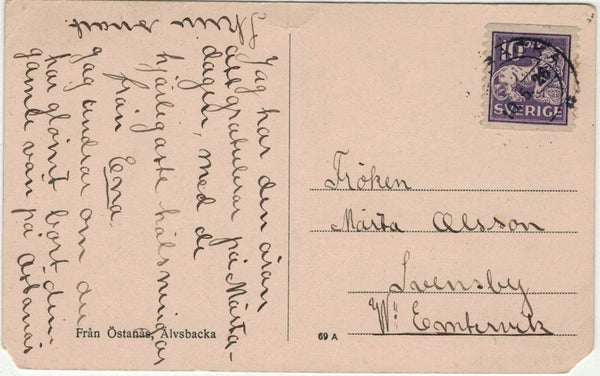 Jag har den äran
att gratulera på Märta-
dagen, med de
hjärligaste hälsningar
från Erna.
Jag undrar om du
har glömt bort din
gamla vän på Östanås
Skriv snart
Från Östanås, Älvsbacka
69 A
10
SVERIGE
Fröken
Märta Olsson
Svensby
W: Emtervik